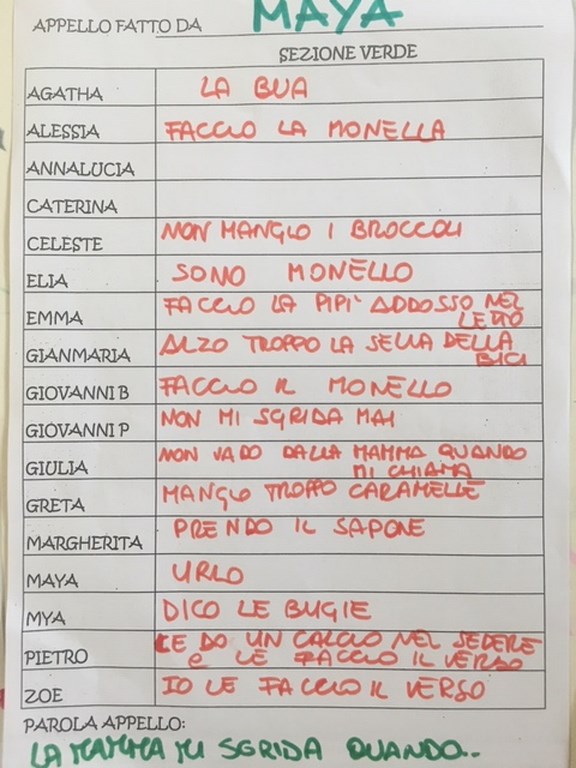 APPELLO FATTO DA MAYA
SEZIONE VERDE
AGATHA LA BUA
ALESSIA FACCIO LA MONELLA
ANNALUCIA
CATERINA
CELESTE NON MANGIO I BROCCOLI
ELIA SONO MONELLO
EMMA FACCIO LA PIPI' ADDOSSO NEL
LETTO
GIANMARIA ALZO TROPPO LA SELLA DELLA
BICI
GIOVANNI B FACCIO IL MONELLO
GIOVANNI P NON MI SGRIDA MAI
GIULIA NON VADO DALLA MAMMA QUANDO
MI CHIAMA
GRETA MANGIO TROPPO CARAMELLE
MARGHERITA PRENDO IL SAPONE
MAYA URLO
MYA DICO LE BUGIE
PIETRO LE DO UN CALCIO NEL SEDERE
e LE FACCIO IL VERSO
ZOE IO LE FACCIO IL VERSO
PAROLA APPELLO:
LA MAMMA MI SGRIDA QUANDO..